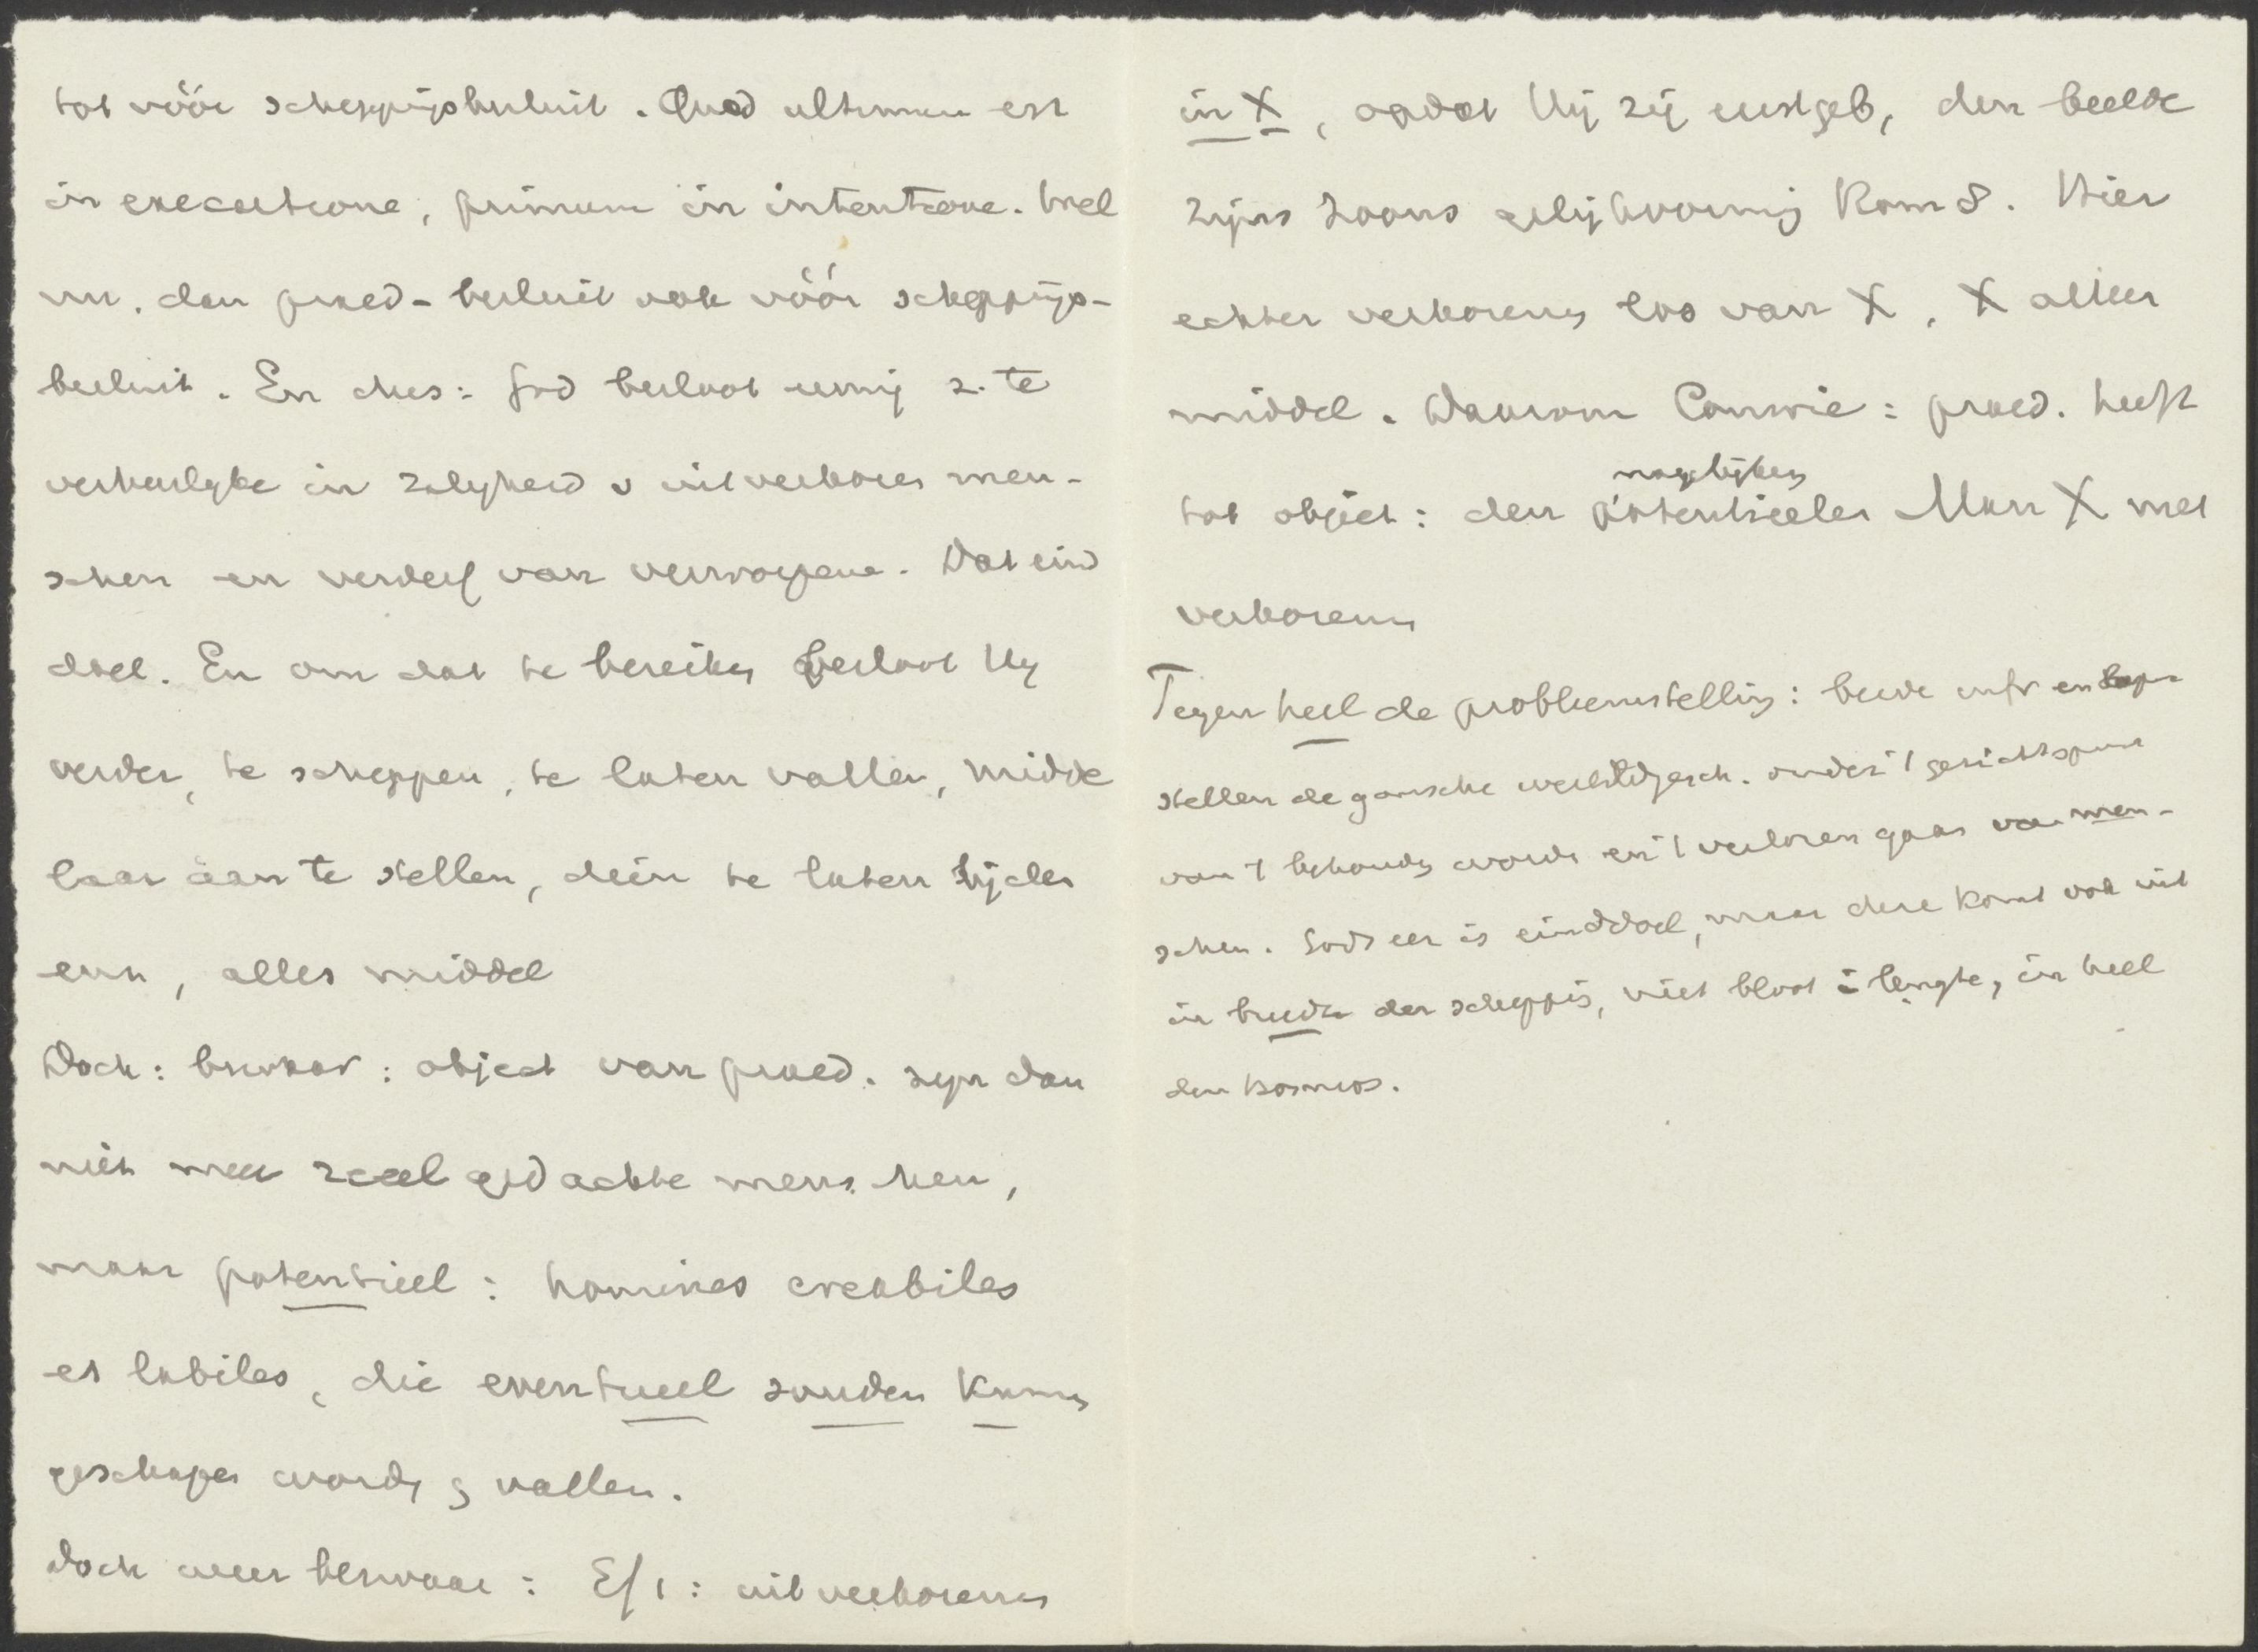 tot vóór scheppingsbesluit. Quod ultimum est
in executione, primum in intentione. Wel
nu, dan praed-besluit ook vóór scheppings-
besluit. En dus: God besloot eeuwig z. te
verheerlijke in zaligheid v uitverkoren men-
schen en verderf van verworpene. Dat eind
doel. En om dat te bereiken besloot Hij
verder, te scheppen, te laten vallen, midde
laar aan te stellen, dien te laten lijden
enz, alles middel
Doch: bezwaar: object van praed. zijn dan
niet meer reeel gedachte menschen,
maar potentieel: homines creabiles
et labiles, die eventueel zouden kunnen
geschapen worden en vallen.
Doch weer bezwaar: Ef 1: uitverkorenen
in X, opdat Hij zij eerstgeb, den beelde
zijns Zoons gelijkvormig Rom 8. Hier
echter verkorenen los van X, X alleen
middel. Daarom Comrie: praed. heeft
mogelijken
tot object: den potentieelen Man X met
verkorenen
Tegen heel de probleemstelling: beide infr en supr
stellen de gansche wereldgesch. onder 't gezichtspunt
van 't behouden worden en 't verloren gaan van men-
schen. Gods eer is einddoel, maar deze komt ook uit
in breedte der schepping, niet bloot in lengte, in heel
den kosmos.